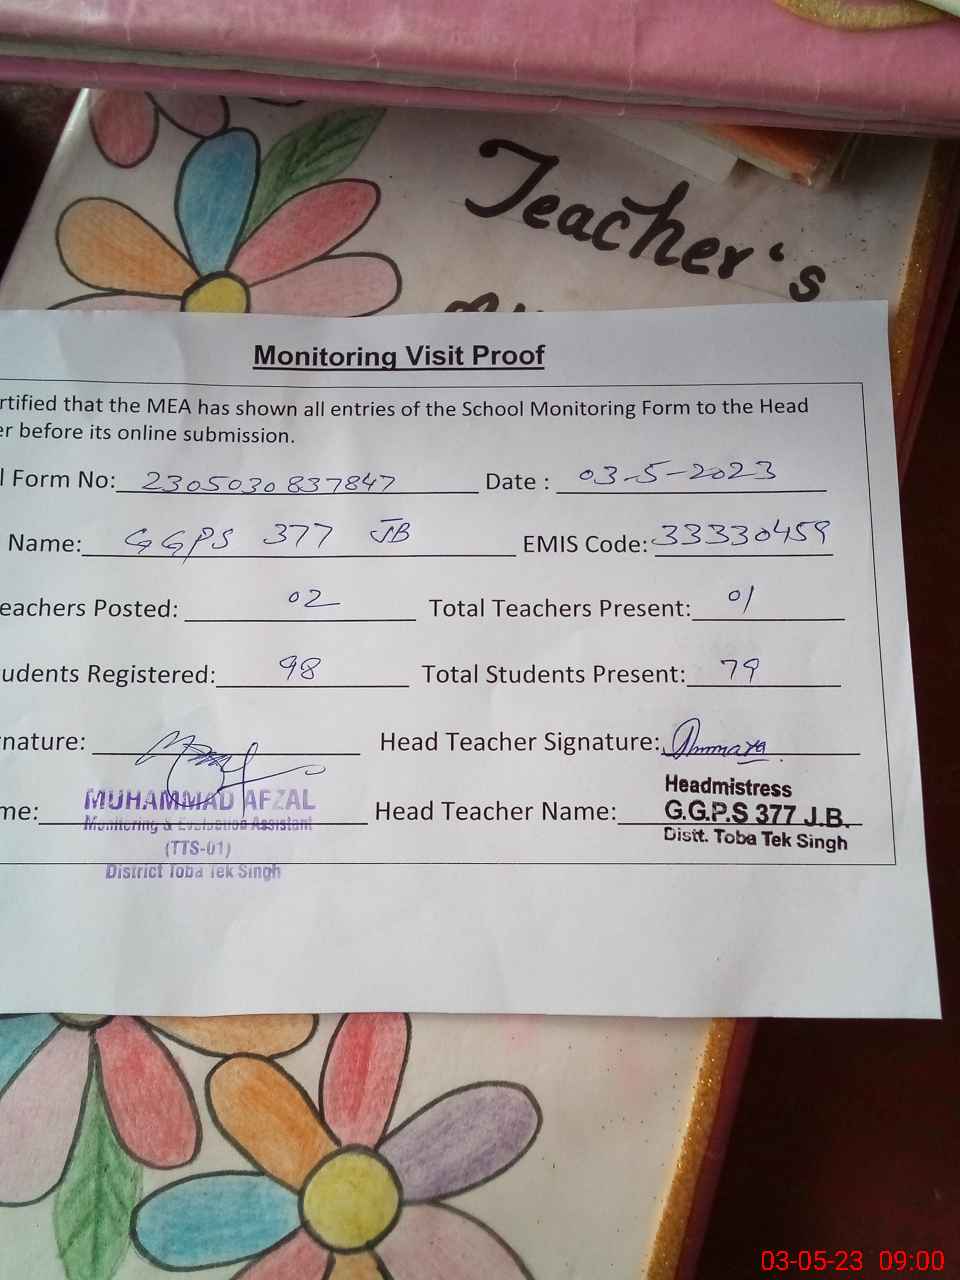 Teacher's
Monitoring Visit Proof
rtified that the MEA has shown all entries of the School Monitoring Form to the Head
er before its online submission.
l Form No: 2305030837847 Date : 03-5-2023
Name: GGPS 377 JB EMIS Code: 33330459
eachers Posted: 02 Total Teachers Present: 01
udents Registered: 98 Total Students Present: 79
nature: Head Teacher Signature:
me: MUHAMMAD AFZAL Head Teacher Name: Headmistress
Monitoring & Evaluation Assistant G.G.P.S 377 J.B.
(TTS-01) Distt. Toba Tek Singh
District Toba Tek Singh
03-05-23 09:00